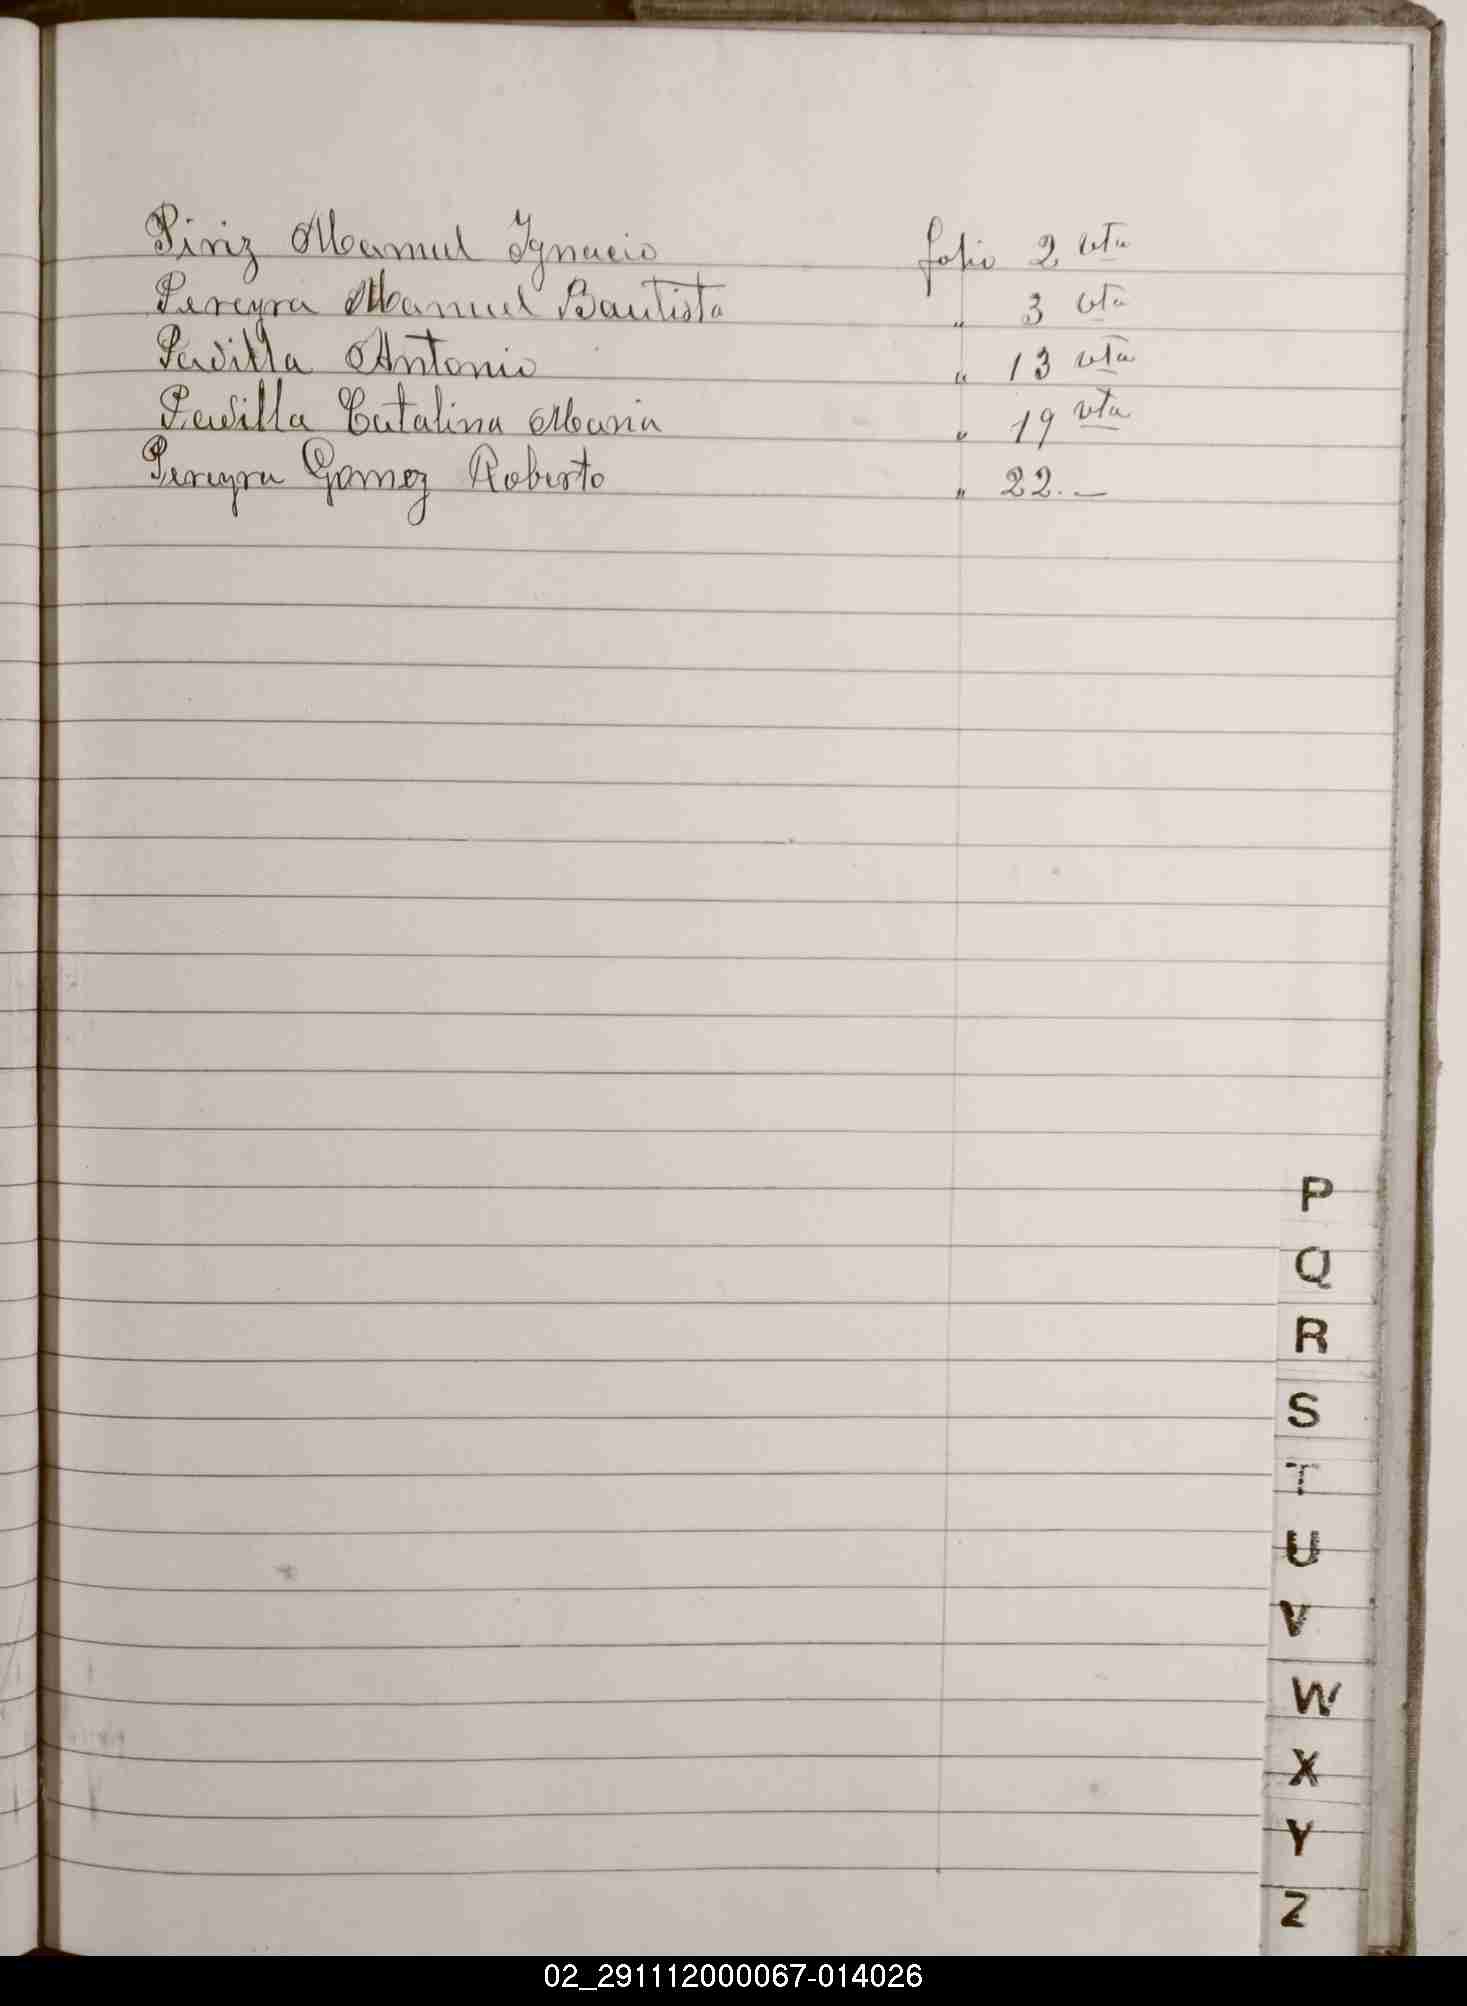 Piriz Manuel Ignacio folio 2 vta
Pereyra Manuel Bautista " 3 vta
Padilla Antonio " 13 vta
Padilla Catalina Maria " 19 vta
Pereyra Gomez Roberto " 22.—
P
Q
R
S
T
U
V
W
X
Y
Z
02_291112000067-014026